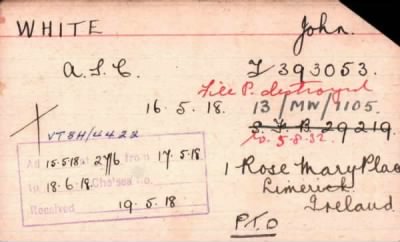 WHITE John.
A.S.C. T 393053.
File P. destroyed
16.5.18. 13/MW/1105.
S.F.B 29219.
5-8-32.
VTBH/4422
Ad 15.5.18 at 27/6 from 17.5.18
to 18.6.18. Chelsea No.
Received 19.5.18
1 Rose Mary Place
Limerick
Ireland
P.T.O